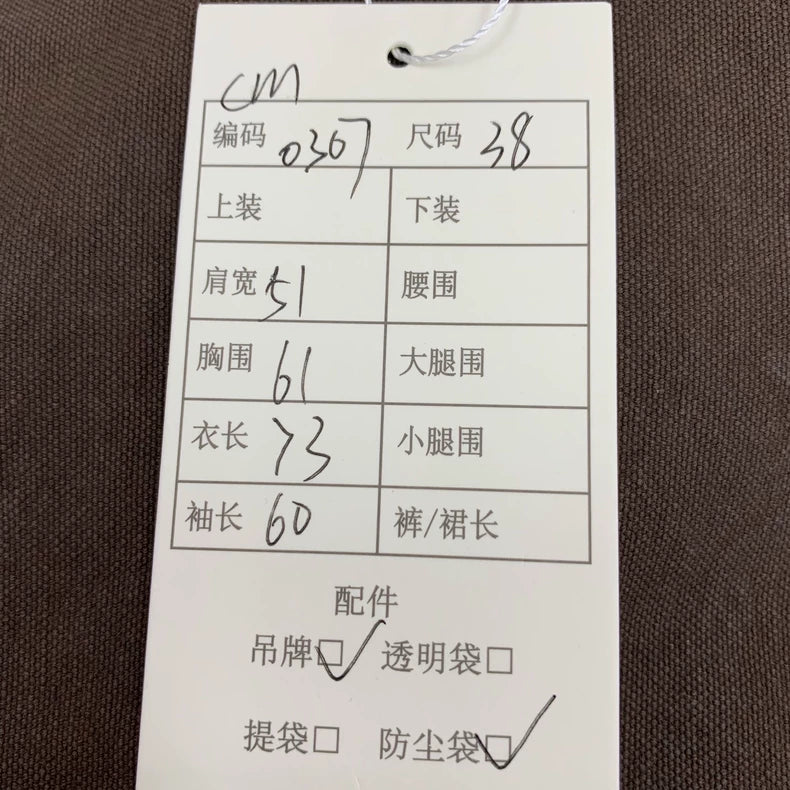 CM
编码 0367 尺码 38
上装 下装
肩宽 51 腰围
胸围 61 大腿围
衣长 73 小腿围
袖长 60 裤/裙长
配件
吊牌☑ 透明袋□
提袋□ 防尘袋☑